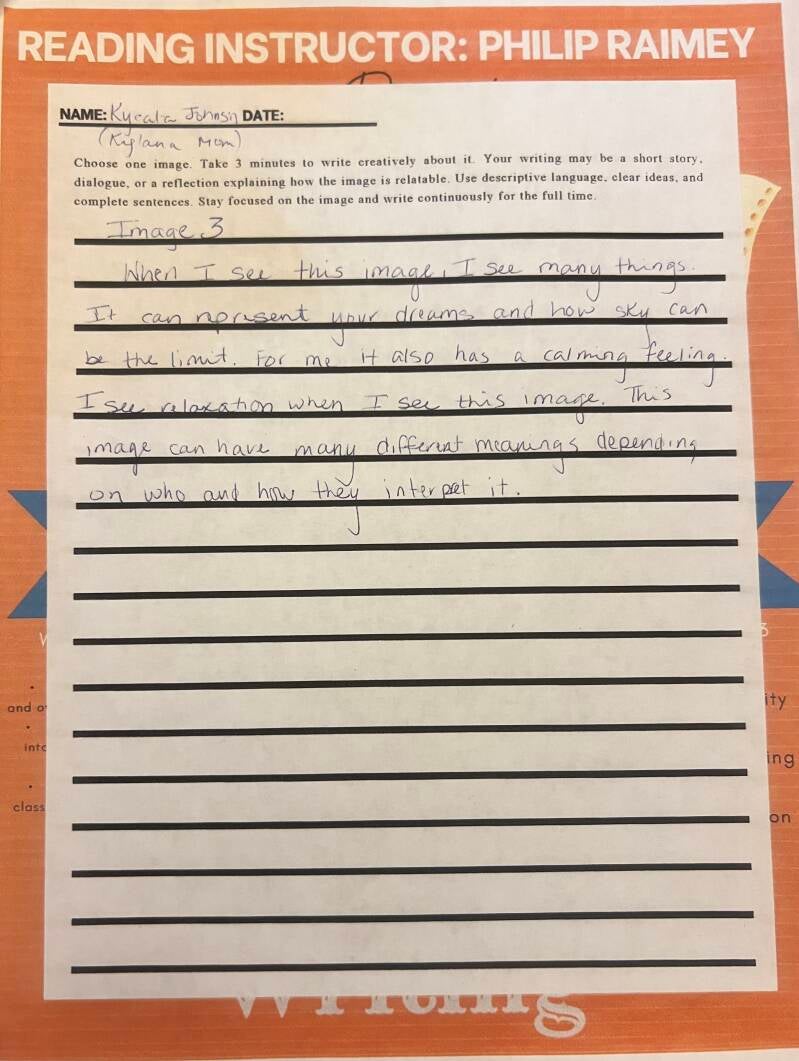 READING INSTRUCTOR: PHILIP RAIMEY
NAME: Johnson DATE:
(Kiglana Mom)
Choose one image. Take 3 minutes to write creatively about it. Your writing may be a short story,
dialogue, or a reflection explaining how the image is relatable. Use descriptive language, clear ideas, and
complete sentences. Stay focused on the image and write continuously for the full time.
Image 3
When I see this image, I see many things.
It can represent your dreams and how sky can
be the limit. For me it also has a calming feeling.
I see relaxation when I see this image. This
image can have many different meanings depending
on who and how they interpret it.
and
into
class
ity
ing
on
Writing